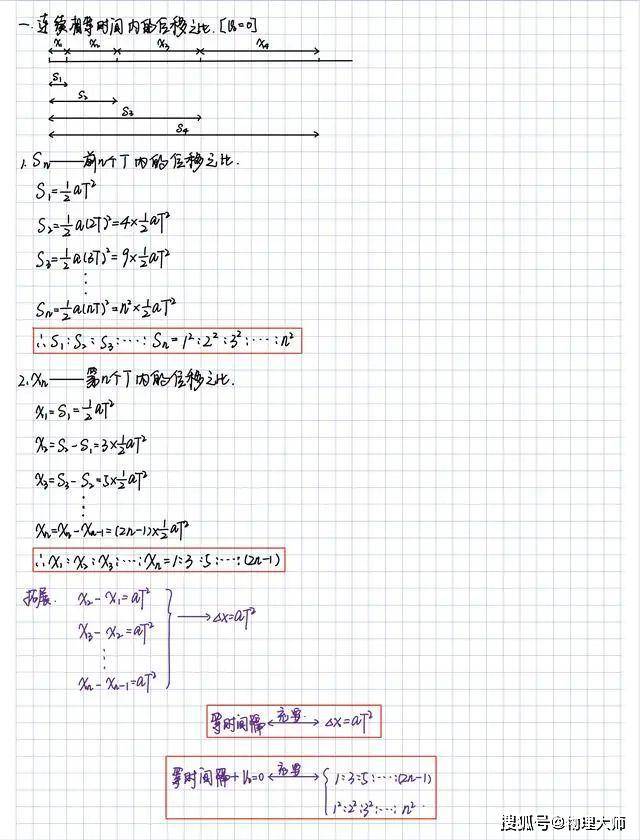 一. 连续相等时间内的位移之比. [V₀=0]
x₁ x₂ x₃ x₄
S₁
S₂
S₃
S₄
1. Sn——前n个T内的位移之比.
S₁=½aT²
S₂=½a(2T)²=4×½aT²
S₃=½a(3T)²=9×½aT²
⋮
Sn=½a(nT)²=n²×½aT²
∴S₁:S₂:S₃:⋯:Sn=1²:2²:3²:⋯:n²
2. Xn——第n个T内的位移之比.
X₁=S₁=½aT²
X₂=S₂-S₁=3×½aT²
X₃=S₃-S₂=5×½aT²
⋮
Xn=Xn-Xn-1=(2n-1)×½aT²
∴X₁:X₂:X₃:⋯:Xn=1:3:5:⋯:(2n-1)
拓展. X₂-X₁=aT²
X₃-X₂=aT² → △X=aT²
⋮
Xn-Xn-1=aT²
等时间隔 ←充要→ △X=aT²
等时间隔+V₀=0 ←充要→ { 1:3:5:⋯:(2n-1)
1²:2²:3²:⋯:n²
搜狐号@物理大师